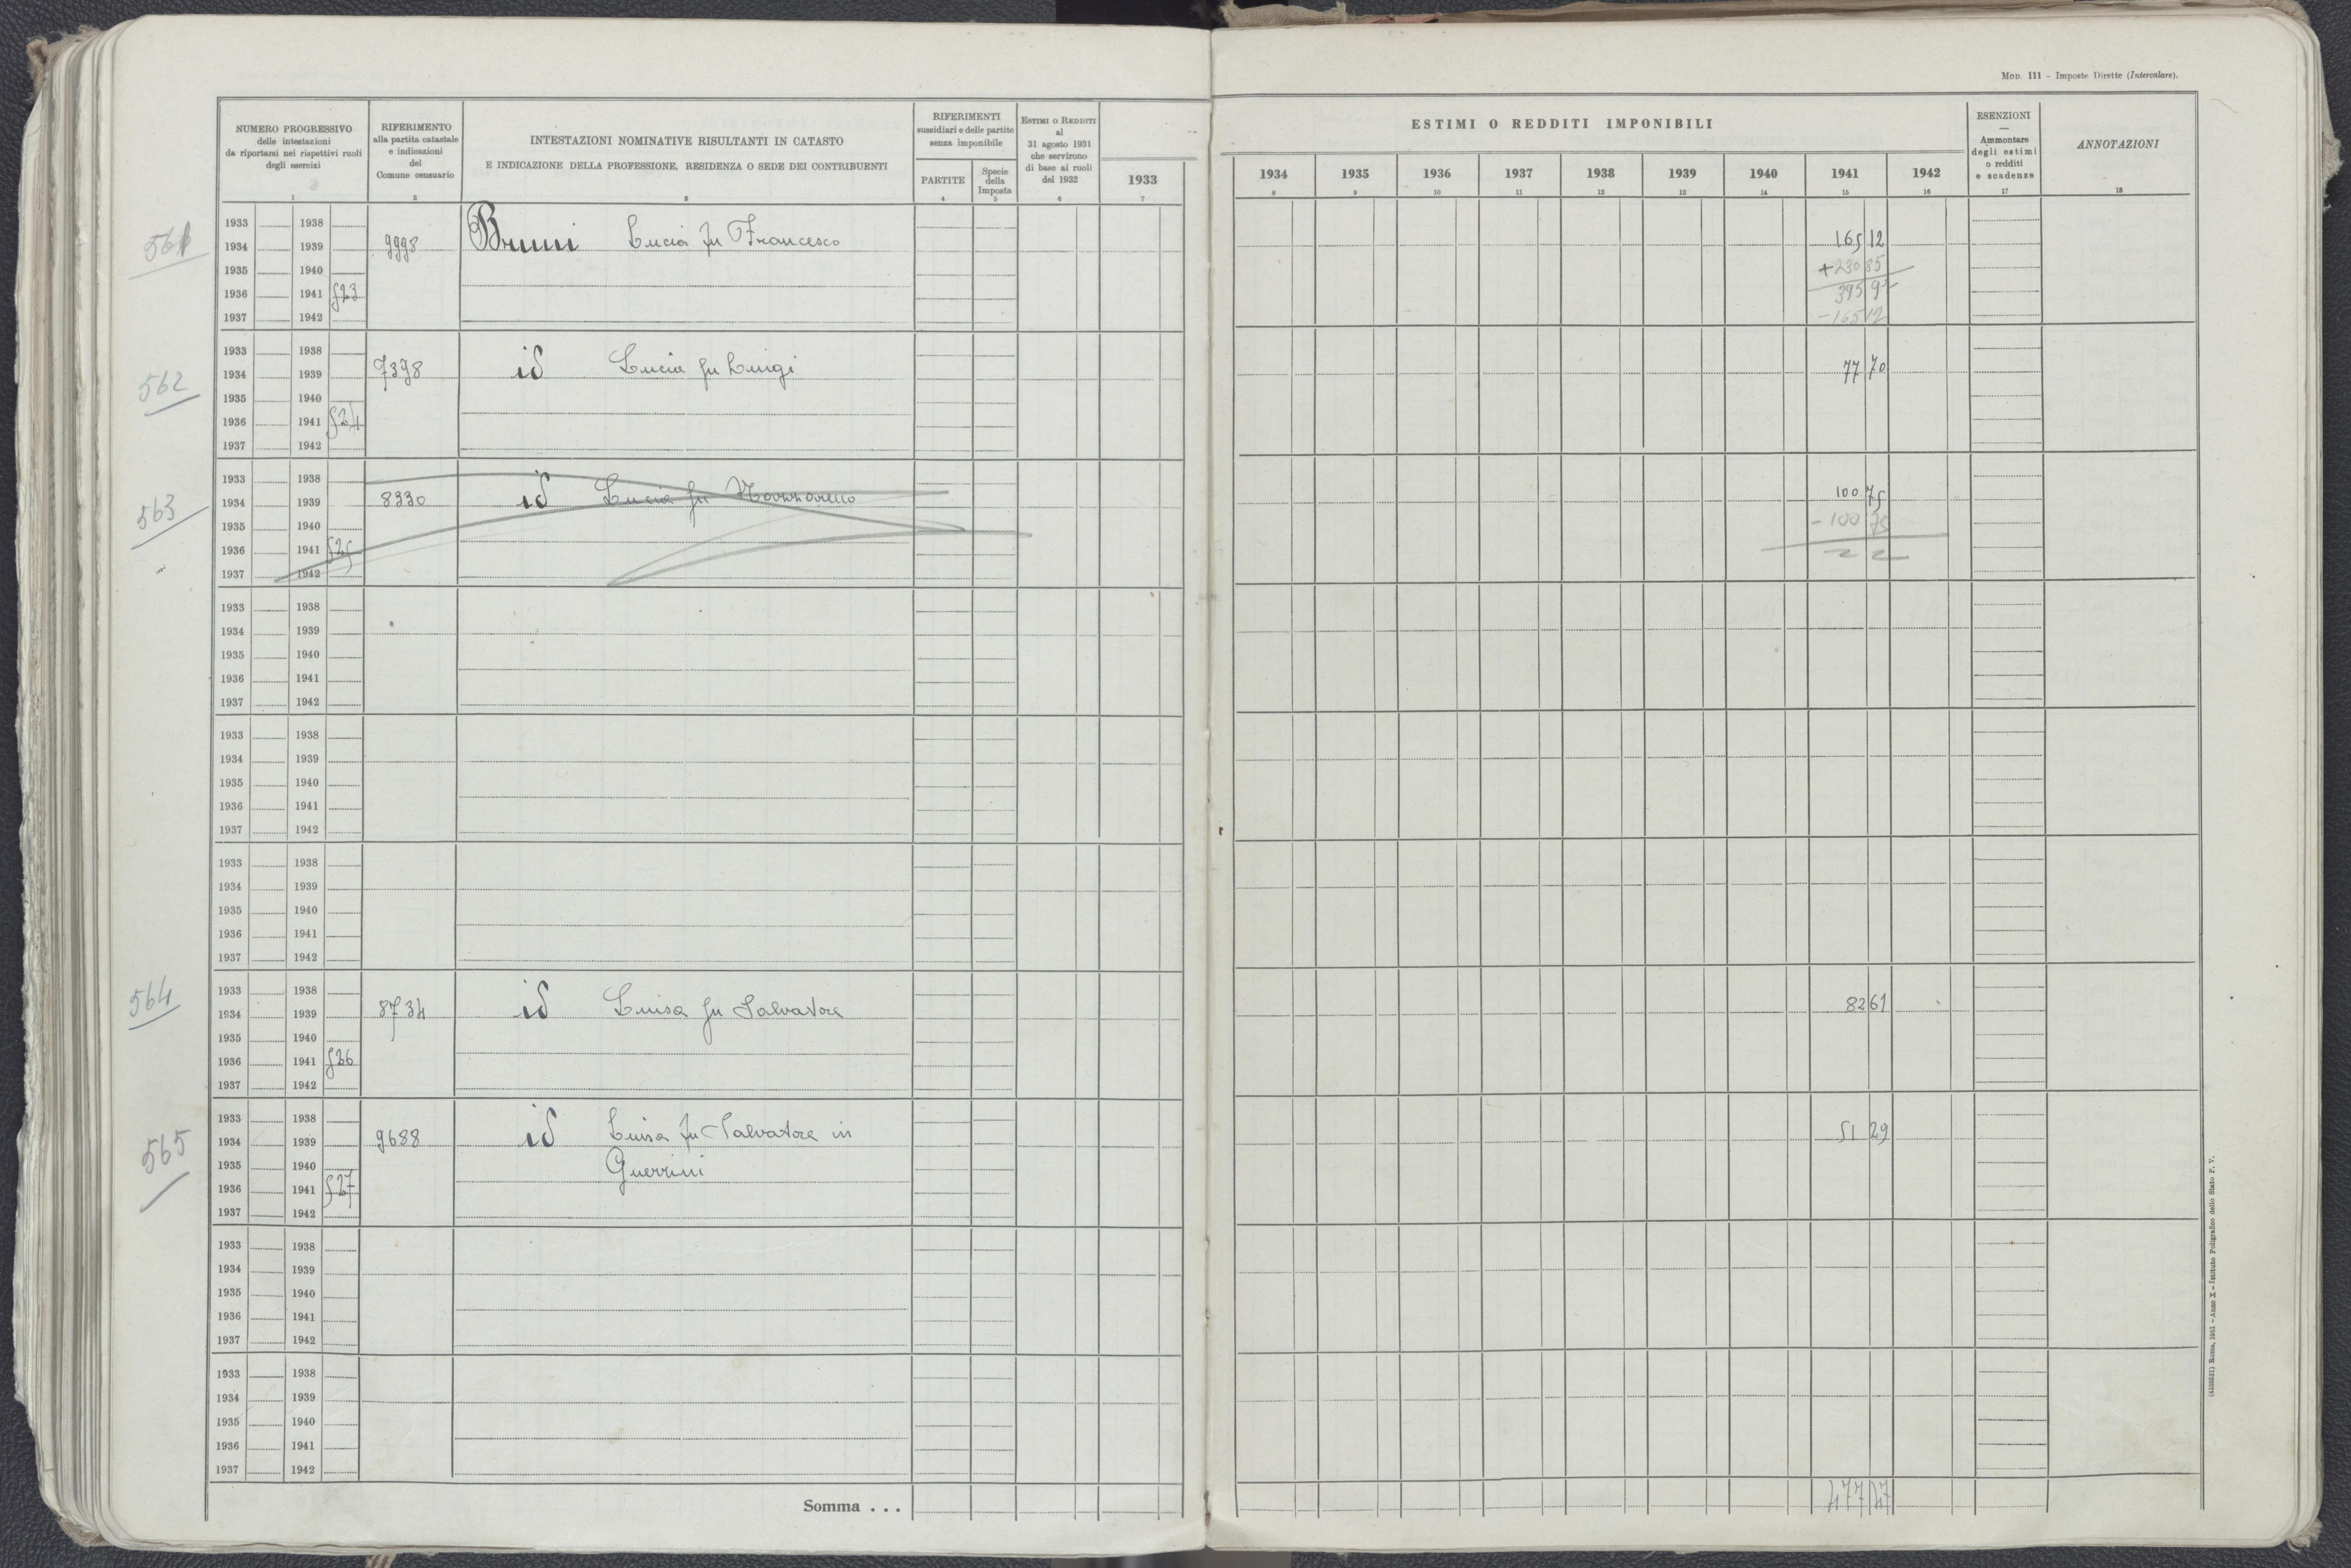 MOD. 111 – Imposte Dirette (Intercalare).
NUMERO PROGRESSIVO
delle intestazioni
da riportarsi nei rispettivi ruoli
degli esercizi
1
RIFERIMENTO
alla partita catastale
e indicazioni
del
Comune censuario
2
INTESTAZIONI NOMINATIVE RISULTANTI IN CATASTO
E INDICAZIONE DELLA PROFESSIONE, RESIDENZA O SEDE DEI CONTRIBUENTI
3
RIFERIMENTI
sussidiari e delle partite
senza imponibile
PARTITE
4
Specie
della
Imposta
5
ESTIMI O REDDITI
al
31 agosto 1931
che servirono
di base ai ruoli
del 1932
6
ESTIMI O REDDITI IMPONIBILI
1933 1934 1935 1936 1937 1938 1939 1940 1941 1942
7 8 9 10 11 12 13 14 15 16
ESENZIONI
—
Ammontare
degli estimi
o redditi
e scadenze
17
ANNOTAZIONI
18
561
1933 1938
1934 1939 9998 Bruni Lucia fu Francesco 165 12
1935 1940 +230 85
1936 1941 523 395 97
1937 1942 -165 12
562
1933 1938
1934 1939 7398 id Lucia fu Luigi 77 70
1935 1940
1936 1941 524
1937 1942
563
1933 1938
1934 1939 8330 id Lucia fu 100 75
1935 1940 - 100 75
1936 1941 525
1937 1942
1933 1938
1934 1939
1935 1940
1936 1941
1937 1942
1933 1938
1934 1939
1935 1940
1936 1941
1937 1942
1933 1938
1934 1939
1935 1940
1936 1941
1937 1942
564
1933 1938
1934 1939 8734 id Luisa fu Salvatore 82 61
1935 1940
1936 1941 526
1937 1942
565
1933 1938
1934 1939 9688 id Luisa fu Salvatore in 51 29
1935 1940 Guerrini
1936 1941 527
1937 1942
1933 1938
1934 1939
1935 1940
1936 1941
1937 1942
1933 1938
1934 1939
1935 1940
1936 1941
1937 1942
Somma . . . 477 47
(4103551) Roma, 1931 – Anno X – Istituto Poligrafico dello Stato P. V.